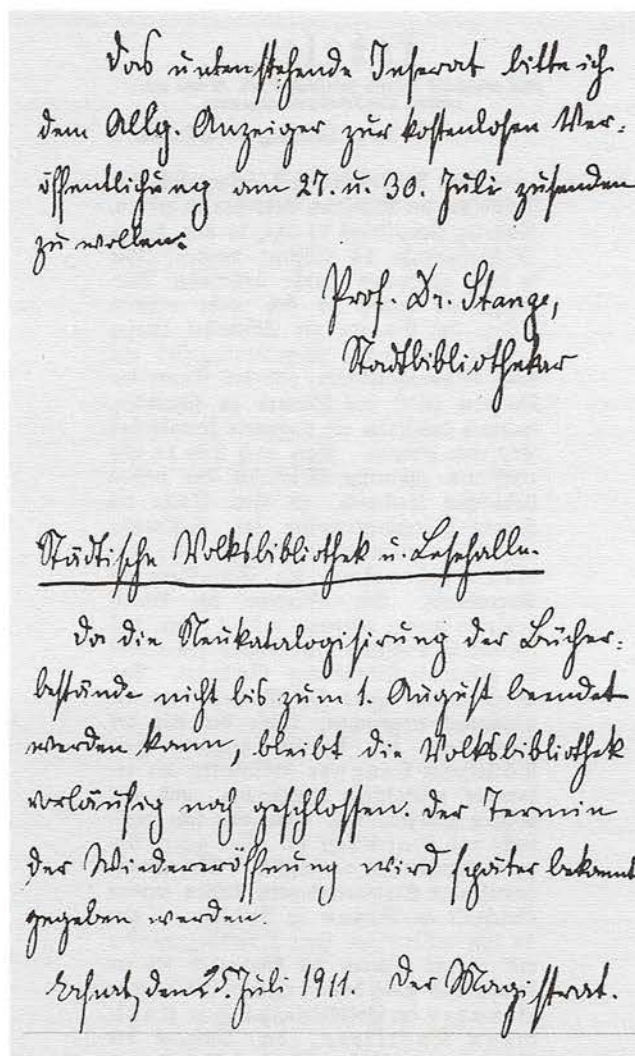 Das untenstehende Inserat bitte ich
dem Allg. Anzeiger zur kostenlosen Ver-
öffentlichung am 27. u. 30. Juli zusenden
zu wollen.
Prof. Dr. Stange,
Stadtbibliothekar
Städtische Volksbibliothek u. Lesehalle.
Da die Neukatalogisirung der Bücher-
bestände nicht bis zum 1. August beendet
werden kann, bleibt die Volksbibliothek
vorläufig noch geschlossen. Der Termin
der Wiedereröffnung wird später bekannt
gegeben werden.
den 25. Juli 1911. Der Magistrat.